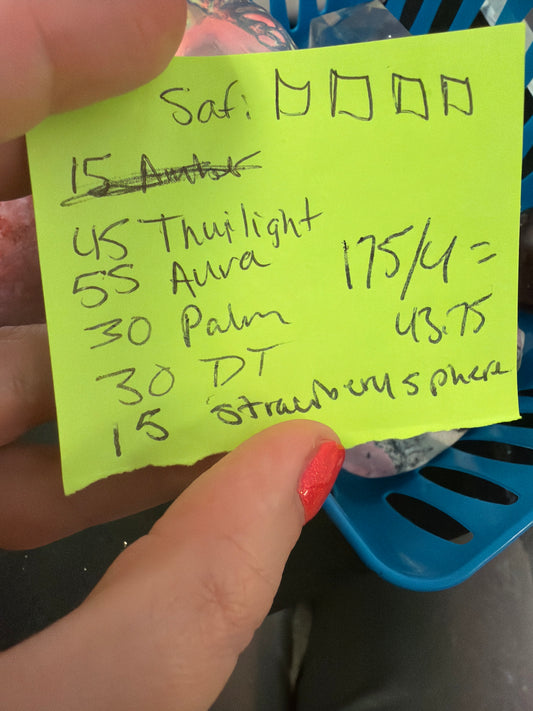 Saf:
15 Amber
45 Thurilight
55 Aura
30 Palm
30 DT
15 Strawberry sphere
175/4 =
43.75